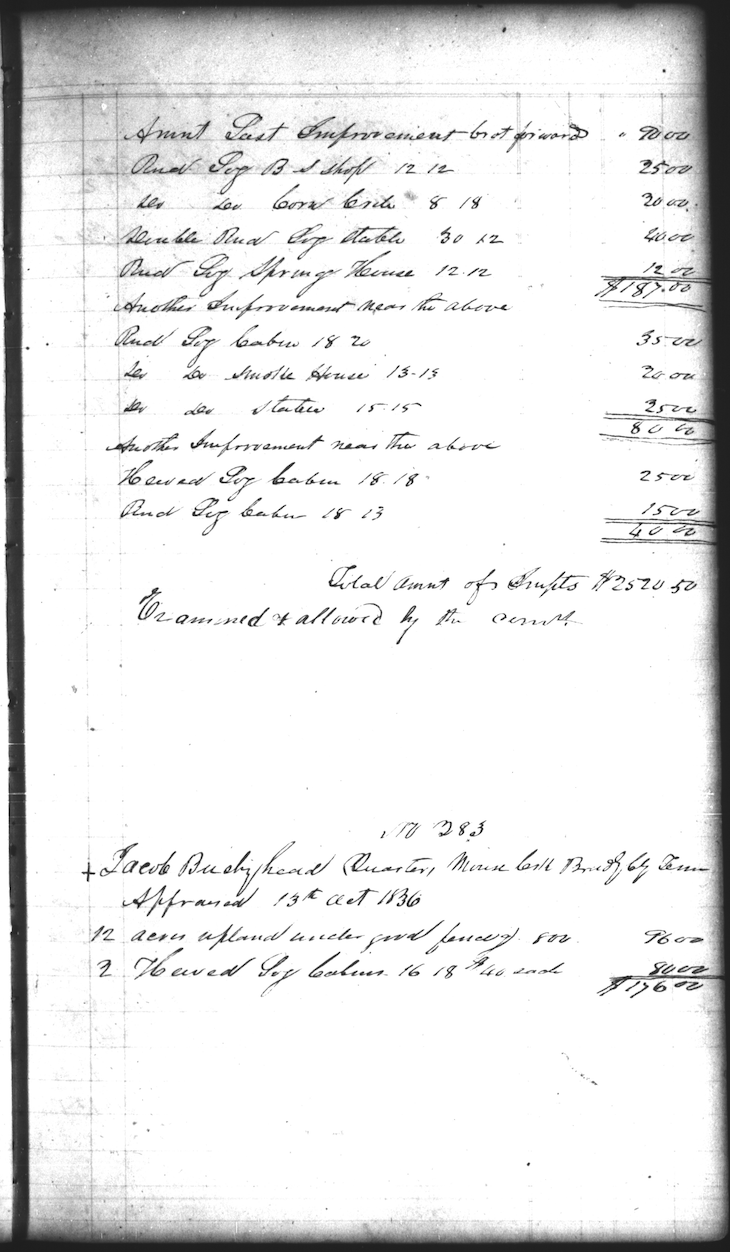 Amnt Last Improvement brot forward " 90 00
Rnd Log B S shop 12 12 25 00
Do Do Corn Crib 8 18 20 00
Double Rnd Log Stable 30 12 40 00
Rnd Log Spring House 12.12 12 00
$187.00
Another Improvement near the above
Rnd Log Cabin 18 20 35 00
Do Do Smoke House 13-13 20.00
Do Do Stable 15-15 25 00
80 00
Another Improvement near the above
Hewed Log Cabin 18.18 25 00
Rnd Log Cabin 18 13 15 00
40 00
Total amnt of Impts $2520.50
Examined & allowed by the
No 283
+ Jacob Bushyhead Quaster, Mouse Crk Brad Cty Tenn
Appraised 13th Oct 1836
12 acres upland under good fence 800 96 00
2 Hewed Log Cabins 16 18 $40 each 80 00
$176.00